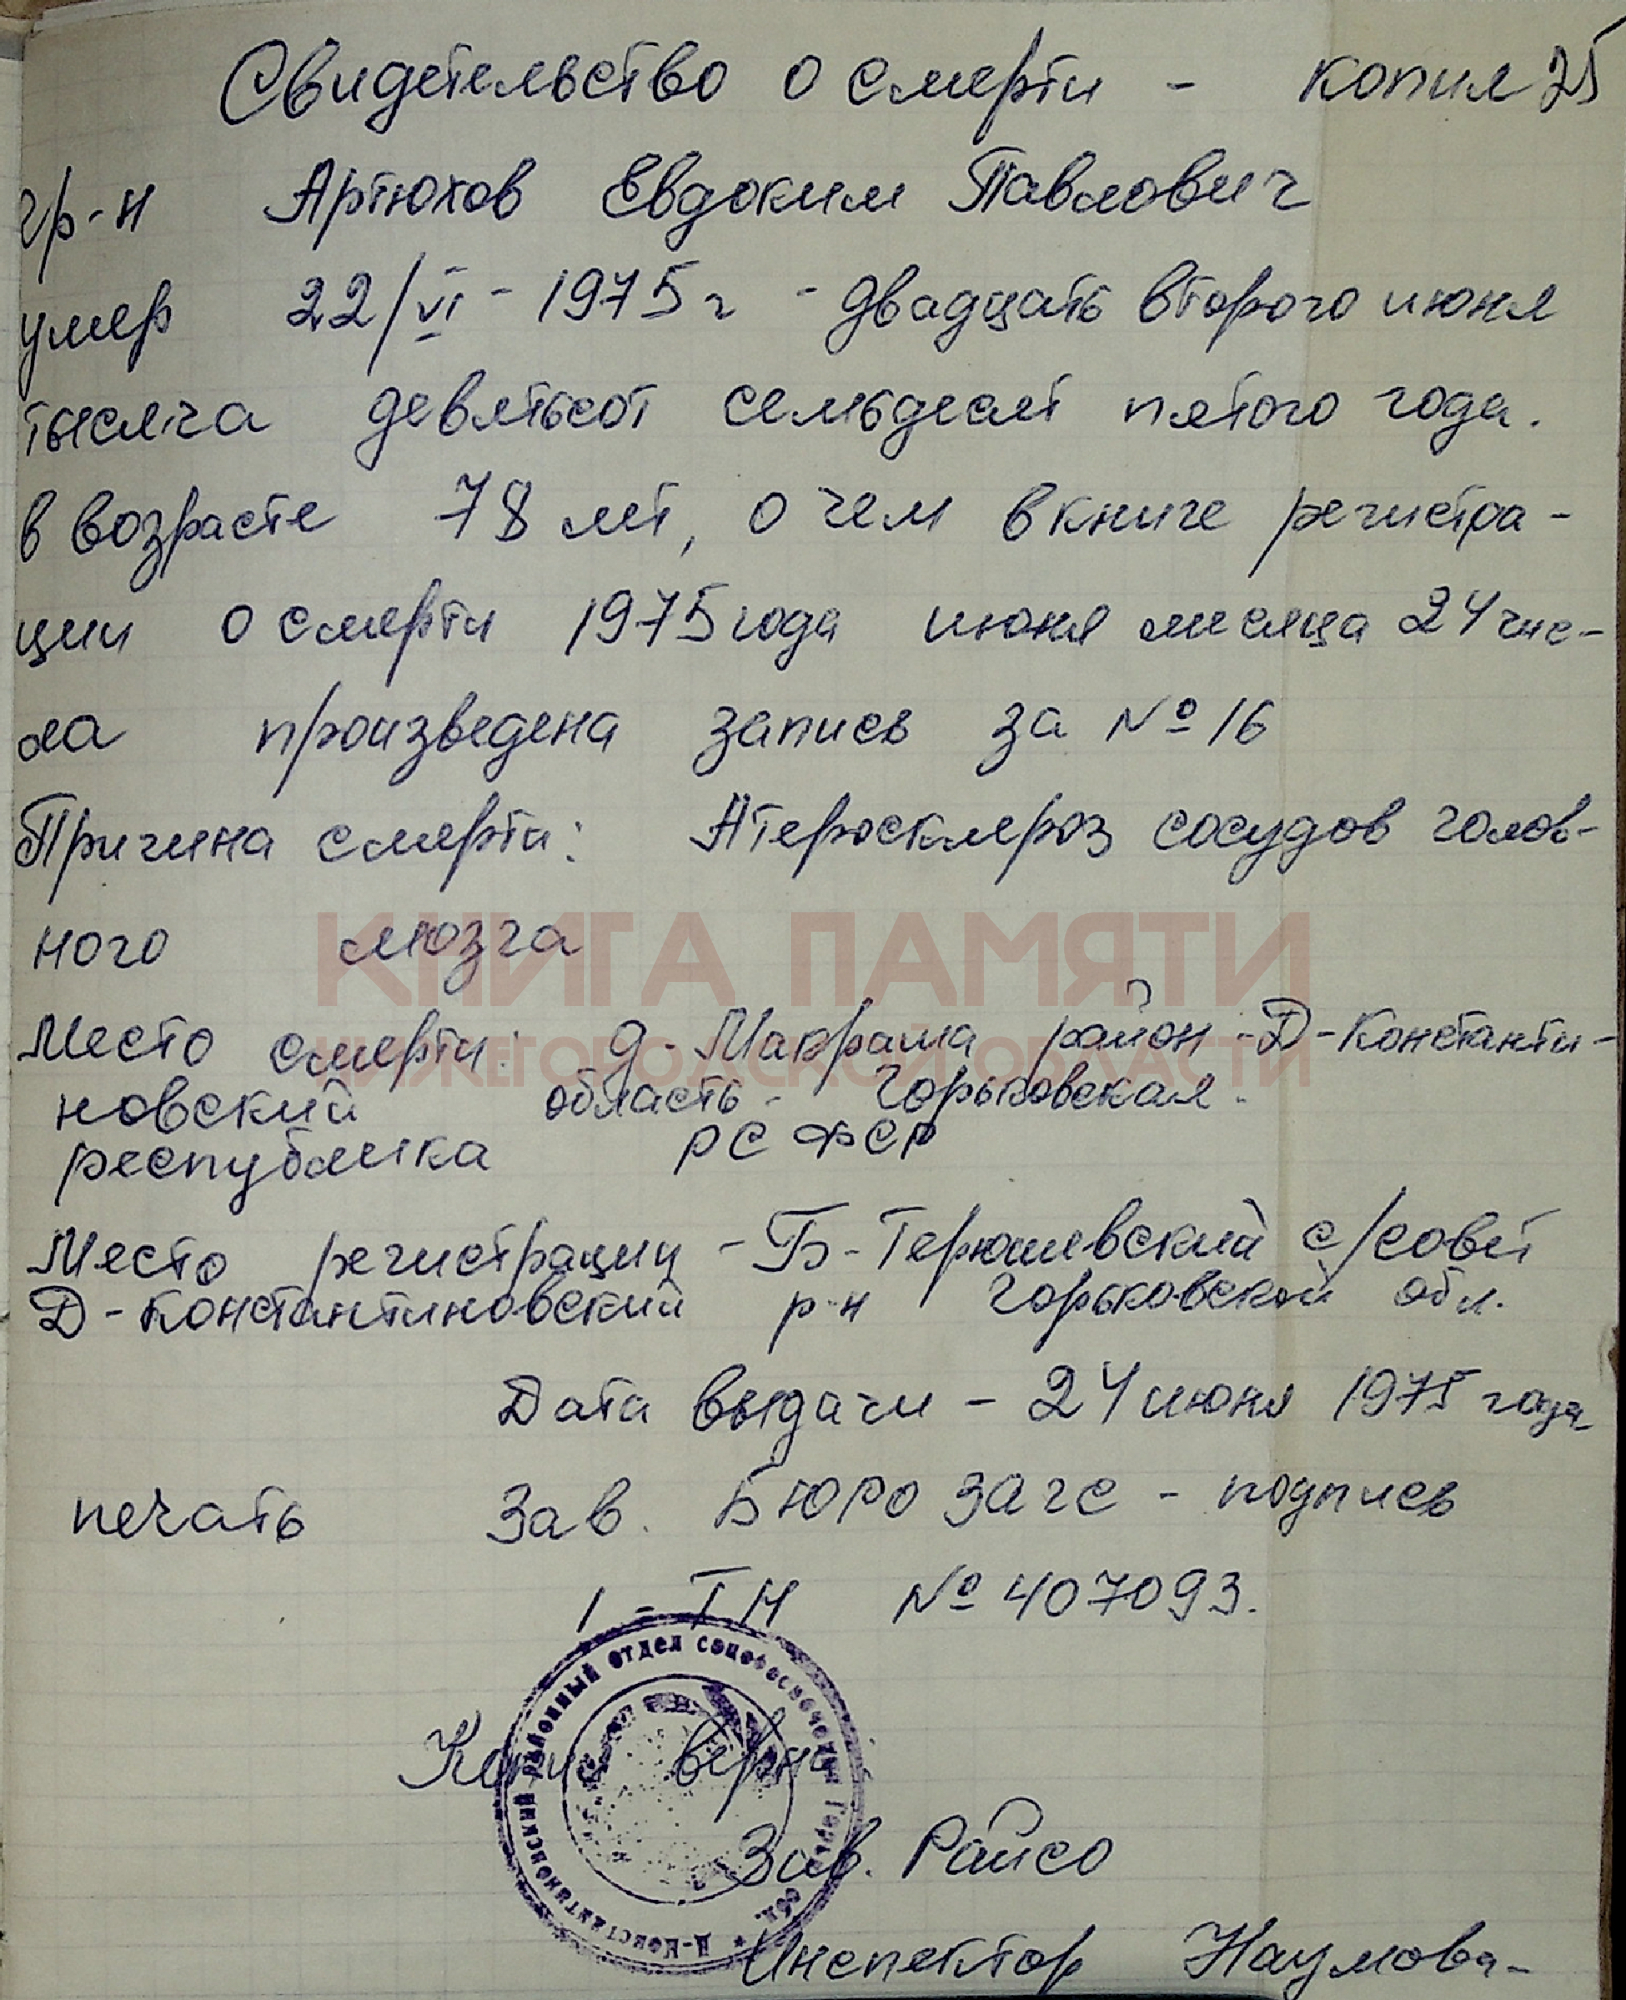 Свидетельство о смерти - копия 25
гр-н Артюхов Евдоким Павлович
умер 22/VI - 1975 г - двадцать второго июня
тысяча девятьсот семьдесят пятого года.
в возрасте 78 лет, о чем в книге регистра-
ции о смерти 1975 года июня месяца 24 чис-
ла произведена запись за № 16
Причина смерти: Атеросклероз сосудов голов-
ного мозга
КНИГА ПАМЯТИ
НИЖЕГОРОДСКОЙ ОБЛАСТИ
Место смерти: д. Макраша район - Д-Константи-
новский область - Горьковская.
республика РСФСР
Место регистрации - Б-Терюшевский с/совет
Д-Константиновский р-н Горьковской обл.
Дата выдачи - 24 июня 1975 года
печать Зав. Бюро загс - подпись
I - ТН № 407093.
Д-Константиновский районный отдел соцобеспечения Горьк. обл.
Копия верна
Зав. Райсо
Инспектор Наумова